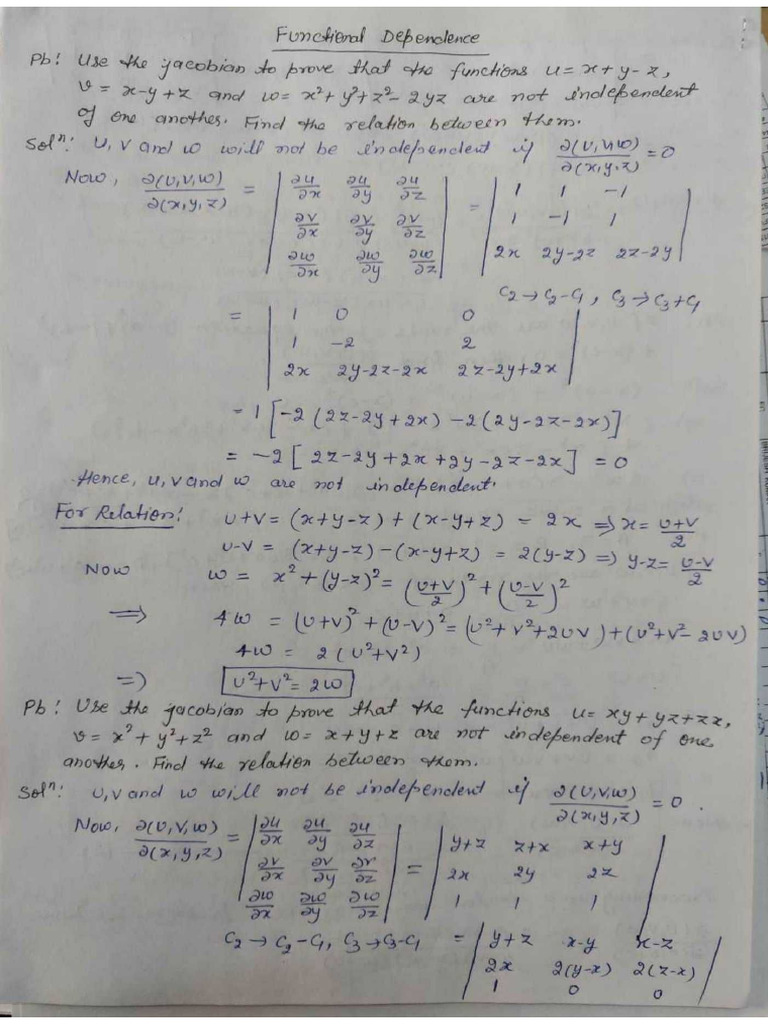 Functional Dependence
Pb! Use the jacobian to prove that the functions u = x+y-z,
v = x-y+z and w = x²+y²+z²-2yz are not independent
of one another. Find the relation between them.
Solⁿ: U, V and w will not be independent if ∂(U,V,W)/∂(x,y,z) = 0
Now, ∂(U,V,W)/∂(x,y,z) = | ∂u/∂x ∂u/∂y ∂u/∂z ; ∂v/∂x ∂v/∂y ∂v/∂z ; ∂w/∂x ∂w/∂y ∂w/∂z | = | 1 1 -1 ; 1 -1 1 ; 2x 2y-2z 2z-2y |
C₂→C₂-C₁, C₃→C₃+C₁
= | 1 0 0 ; 1 -2 2 ; 2x 2y-2z-2x 2z-2y+2x |
= 1 [-2 (2z-2y+2x) -2(2y-2z-2x)]
= -2 [ 2z-2y+2x+2y-2z-2x] = 0
Hence, u, v and w are not independent.
For Relation! U+V = (x+y-z) + (x-y+z) = 2x ⇒ x = (U+V)/2
U-V = (x+y-z) - (x-y+z) = 2(y-z) ⇒ y-z = (U-V)/2
Now w = x²+(y-z)² = ((U+V)/2)² + ((U-V)/2)²
⇒ 4w = (U+V)² + (U-V)² = (U²+V²+2UV) + (U²+V²-2UV)
4w = 2(U²+V²)
⇒ U²+V² = 2w
Pb! Use the jacobian to prove that the functions u = xy+yz+zx,
v = x²+y²+z² and w = x+y+z are not independent of one
another. Find the relation between them.
Solⁿ: U, V and w will not be independent if ∂(U,V,W)/∂(x,y,z) = 0.
Now, ∂(U,V,W)/∂(x,y,z) = | ∂u/∂x ∂u/∂y ∂u/∂z ; ∂v/∂x ∂v/∂y ∂v/∂z ; ∂w/∂x ∂w/∂y ∂w/∂z | = | y+z z+x x+y ; 2x 2y 2z ; 1 1 1 |
C₂→C₂-C₁, C₃→C₃-C₁ = | y+z x-y x-z ; 2x 2(y-x) 2(z-x) ; 1 0 0 |